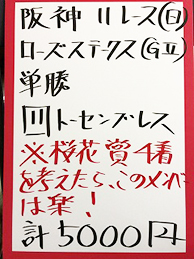 阪神11レース(日)
ローズステークス(GⅡ)
単勝
11トーセンブレス
※桜花賞4着
を考えたら、このメンバー
は楽!
計5000円